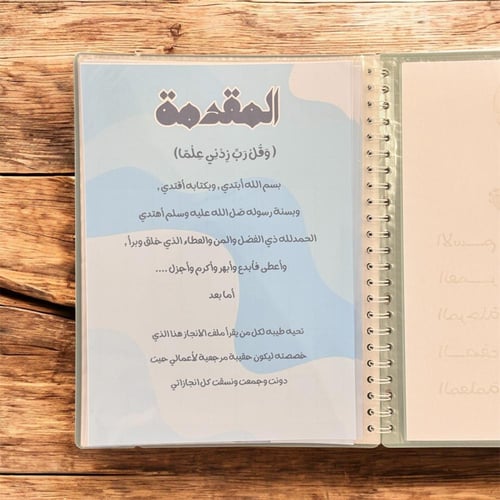 المقدمة
(وَقُل رَبِّ زِدْنِي عِلْمًا)
بسم الله أبتدي , وبكتابه أقتدي ,
وبسنة رسوله صل الله عليه وسلم أهتدي
الحمدلله ذي الفضل والمن والعطاء الذي خلق وبرأ ,
وأعطى فأبدع وأبهر وأكرم وأجزل ....
أما بعد
تحيه طيبه لكل من يقرأ ملف الانجاز هذا الذي
خصصته ليكون حقيبة مرجعية لأعمالي حيت
دونت وجمعت ونسقت كل انجازاتي
الاســـم
المرحلة